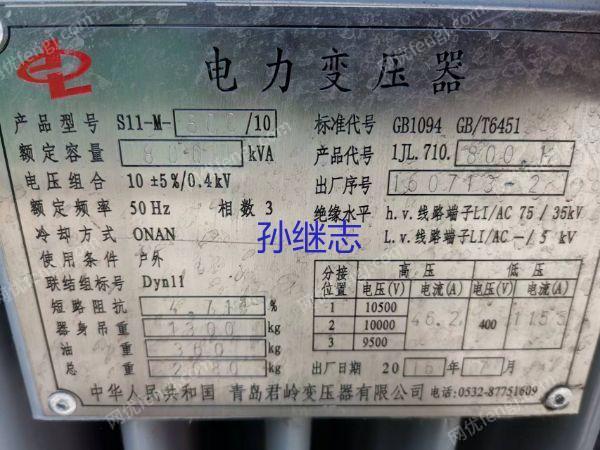 电力变压器
产品型号 S11-M-800/10 标准代号 GB1094 GB/T6451
额定容量 800 kVA 产品代号 1JL.710.800.
电压组合 10 ±5%/0.4kV 出厂序号 160713-2
额定频率 50 Hz 相数 3 绝缘水平 h.v.线路端子LI/AC 75 / 35kV
冷却方式 ONAN L.v.线路端子LI/AC -/ 5 kV
使用条件 户外
联结组标号 Dyn11
短路阻抗 %
器身吊重 1300 kg
油 重 360 kg
总 重 kg
分接位置 高压 低压
电压(V) 电流(A) 电压(V) 电流(A)
1 10500
2 10000 46.2 400 1155
3 9500
出厂日期 2016年7月
中华人民共和国 青岛君岭变压器有限公司 电话:0532-87751609
孙继志
网优 youfeng1.com